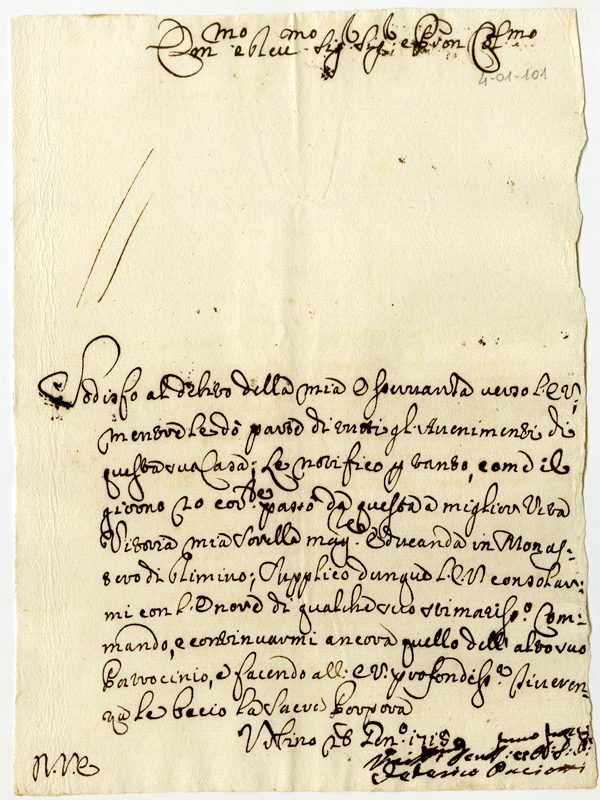 Em.mo e Rev.mo Sig. Sig. e Pron Col.mo
4-01-101
Sodisfo al debito della mia Osservanza verso l'E.V.
mentre le dò parte di tutti gl'Avenimenti di
questa sua Casa; Le notifico p tanto, come il
giorno 20 cor.te passò da questa a miglior Vita
Vitoria mia Sorella mag.re Educanda in Monas-
tero di Rimino; Supplico dunque l'E.V. consolar-
mi con l'Onore di qualche suo stimatiss.o Com-
mando, e continuarmi ancora quello dell'alto suo
Patrocinio, e facendo all'E.V. profondiss.a Riveren-
za le bacio la Sacra Porpora
Urbino 28 Gen.o 1718
Federico